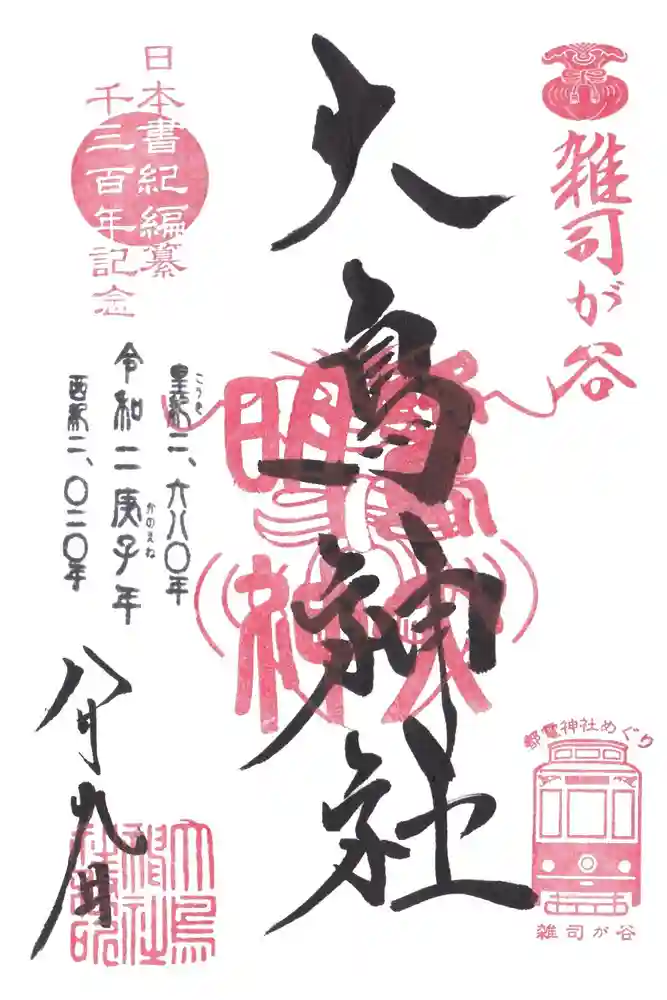 雑司が谷
大鳥神社
鷲大
明神
日本書紀編纂
千三百年記念
皇紀二、六八〇年
こうき
令和二庚子年
かのえね
西紀二、〇二〇年
八月九日
都電神社めぐり
雑司が谷